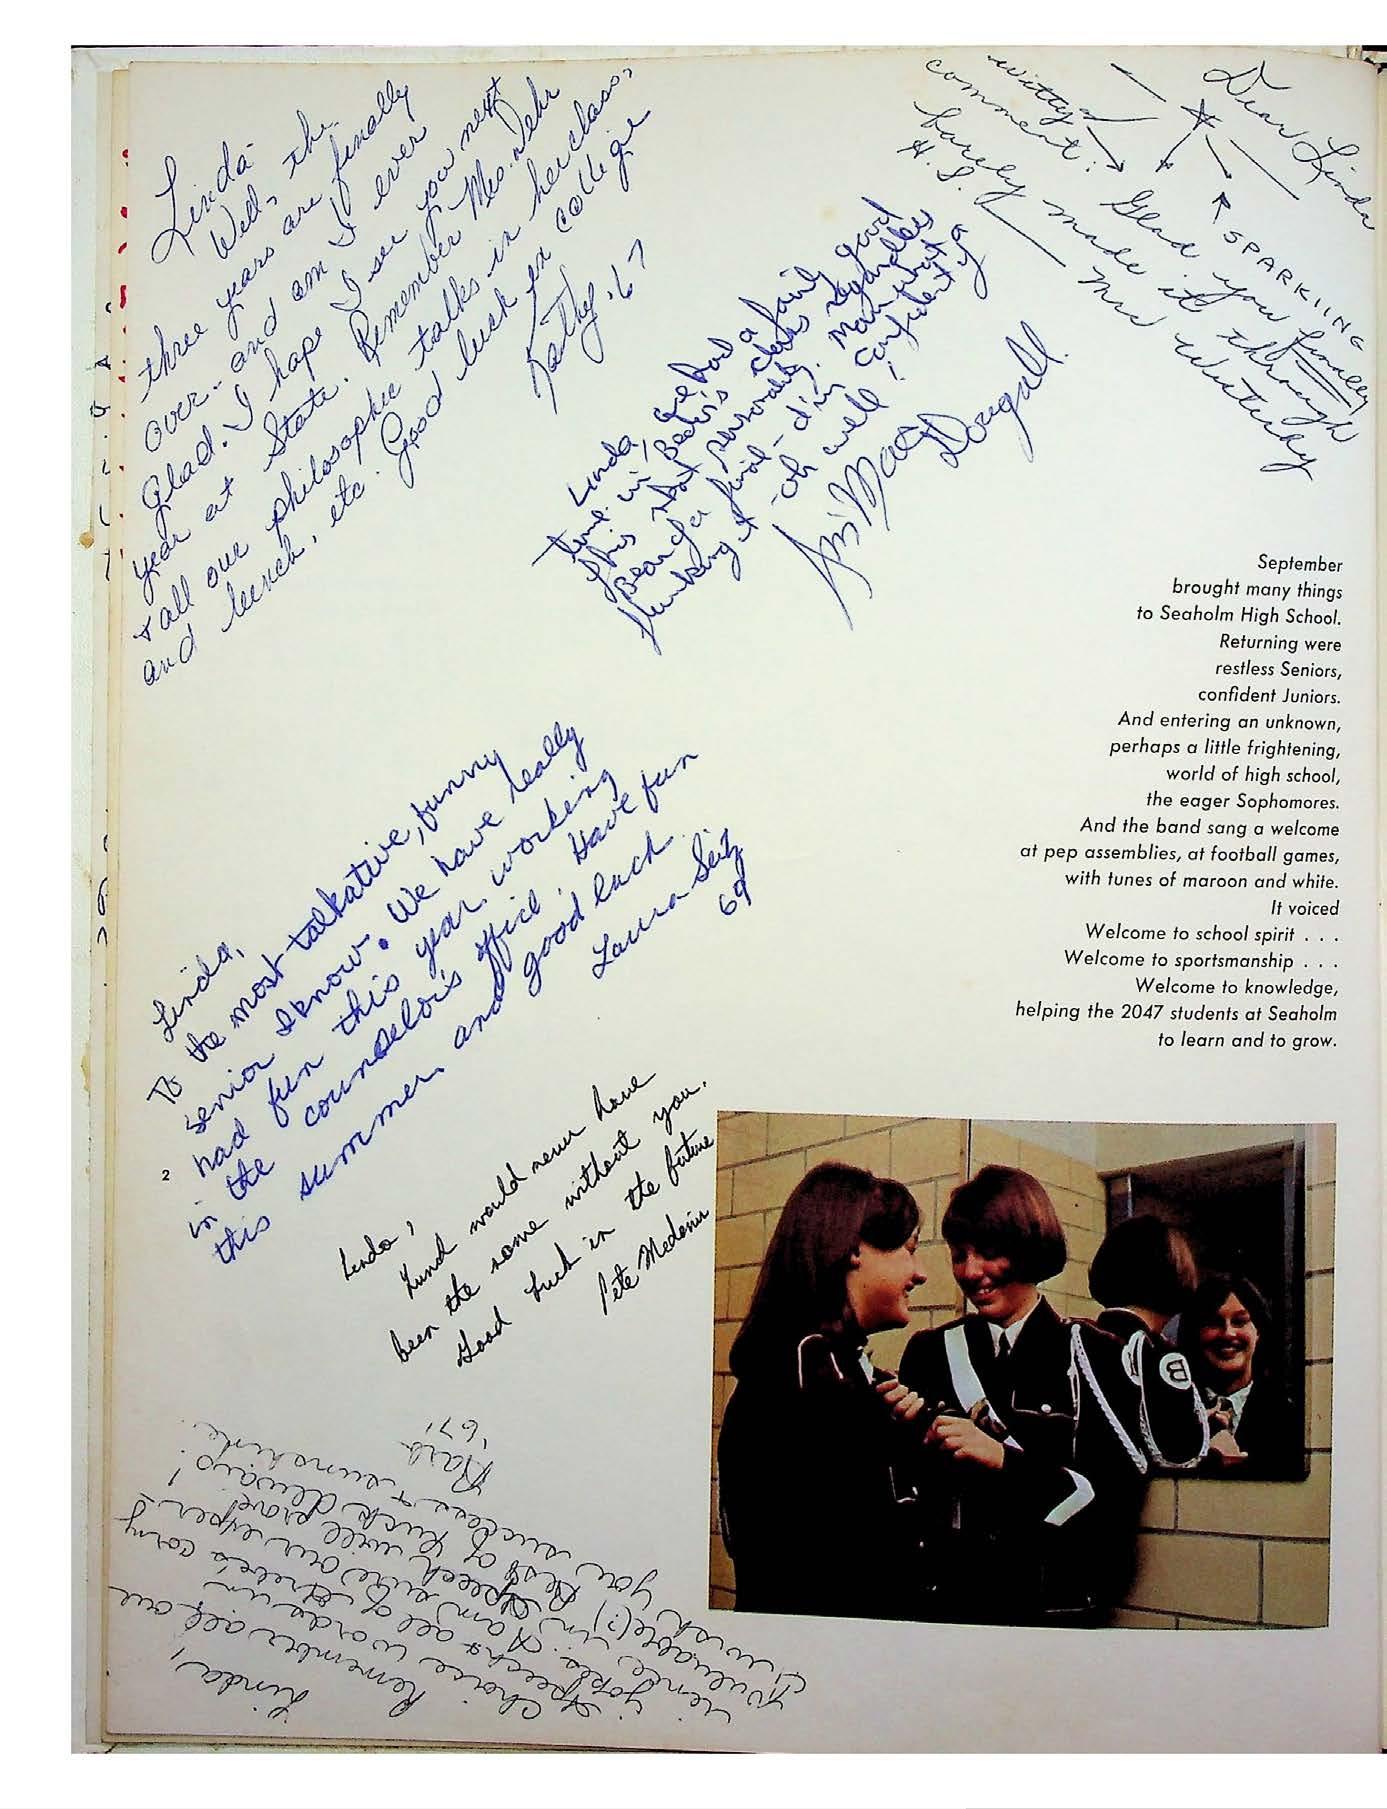 Linda-
Well, the
three years are finally
over.. and am I ever
Glad. I hope I see you next
year at State. Remember Mrs. Dehr
+ all our philosophic talks in her class,
and lunch, etc. Good luck in college
Kathy '67
Linda, we had a fairly good
time in class regardless
this
personality. Man what a
Bear of a final - I'm confident of
flunking it - oh well!
MacDougall.
Dear Linda
SPARKIING
witty
comment:
Glad you finally
barely made it through
H.S.
September
brought many things
to Seaholm High School.
Returning were
restless Seniors,
confident Juniors.
And entering an unknown,
perhaps a little frightening,
world of high school,
the eager Sophomores.
And the band sang a welcome
at pep assemblies, at football games,
with tunes of maroon and white.
It voiced
Welcome to school spirit . . .
Welcome to sportsmanship . . .
Welcome to knowledge,
helping the 2047 students at Seaholm
to learn and to grow.
Linda,
To the most talkative, funny
senior I know. We have really
had fun this year working
in the counselor's office. Have fun
this summer and good luck
Laura Seitz
69
2
Linda,
Lund would never have
been the same without you.
Good luck in the future
Pete
Linda,
Remember all our
choice words in
speech + all of corny
jokes. I am sure our exper-
iences in speech will prove
valuable(?) Best of luck always!
I wish you success + sunshine.
Barb
'67
B